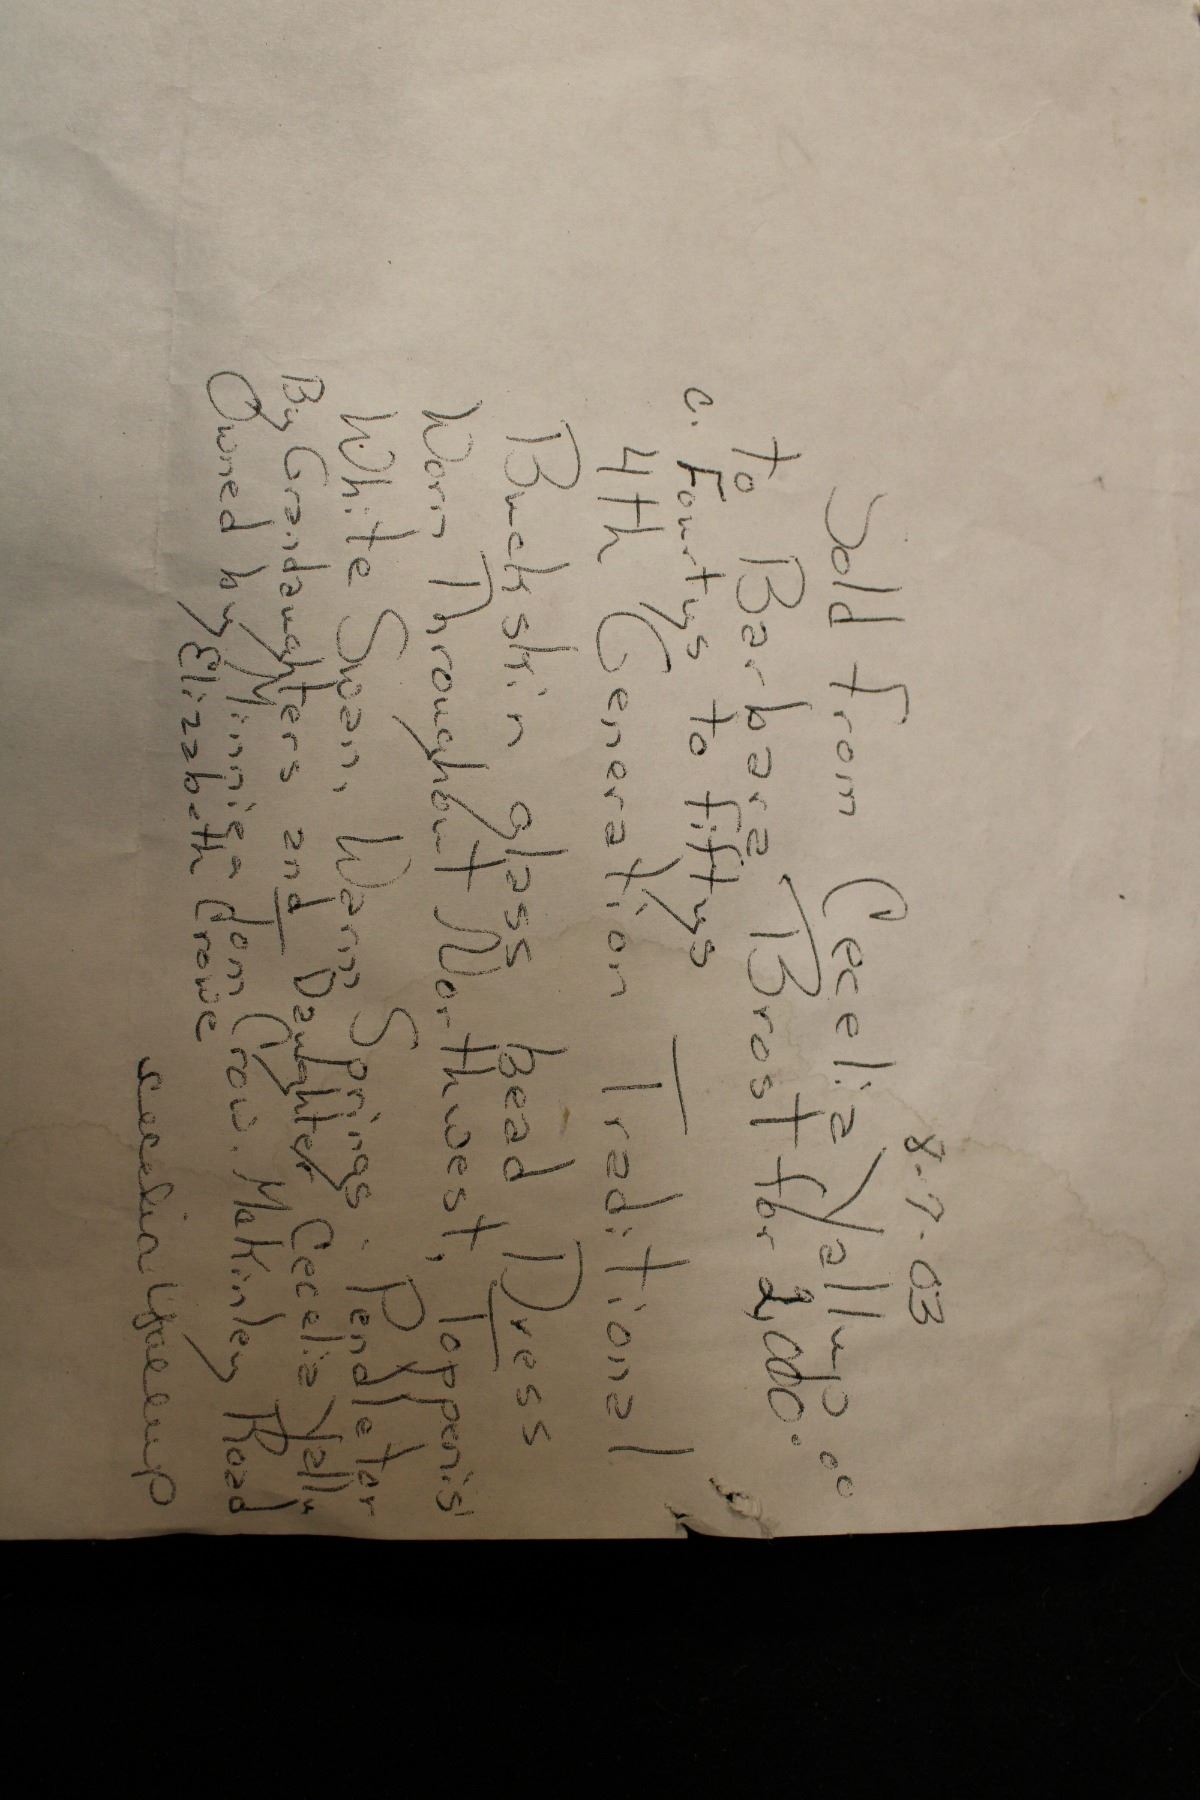 8.7.03
Sold from Cecelia Yallup
to Barbara Brost for 2,000.00
c. Fourtys to fiftys
4th Generation Traditional
Buckskin glass bead Dress
Worn Throughout Northwest, Toppenis
White Swan, Warm Springs. Pendletor
By Grandaughters and Daughter Cecelia Yallu
Owned by Minnie dom Crow. McKinley Road
Elizabeth Crowe
Cecelia Yallup